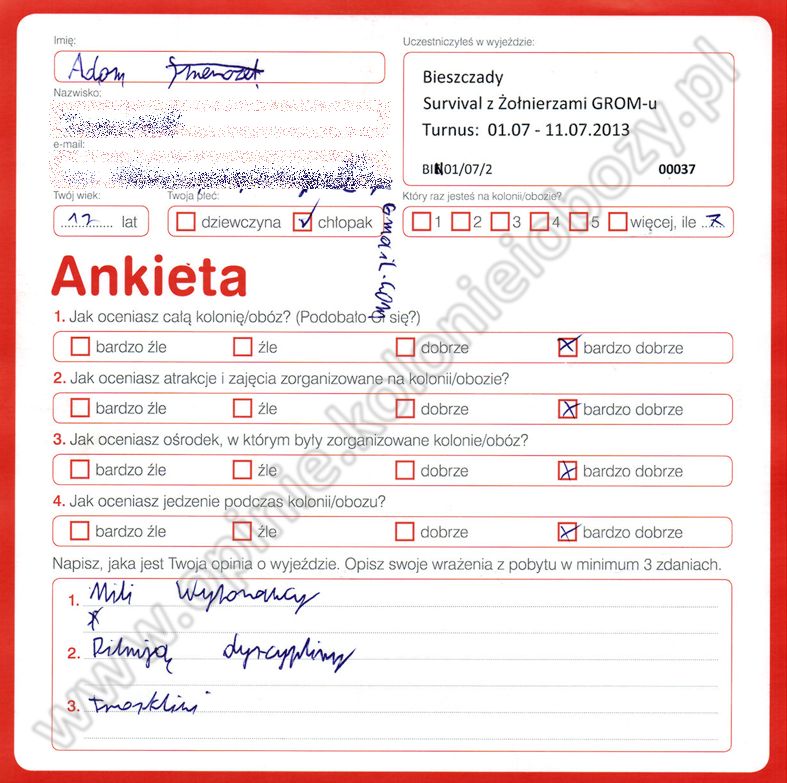 Imię:
Adam
Uczestniczyłeś w wyjeździe:
Bieszczady
Survival z Żołnierzami GROM-u
Turnus: 01.07 - 11.07.2013
01/07/2 00037
Nazwisko:
e-mail:
gmail.com
Twój wiek:
17 lat
Twoja płeć:
dziewczyna chłopak
Który raz jesteś na kolonii/obozie?
1 2 3 4 5 więcej, ile 7
Ankieta
1. Jak oceniasz całą kolonię/obóz? (Podobało Ci się?)
bardzo źle źle dobrze bardzo dobrze
2. Jak oceniasz atrakcje i zajęcia zorganizowane na kolonii/obozie?
bardzo źle źle dobrze bardzo dobrze
3. Jak oceniasz ośrodek, w którym były zorganizowane kolonie/obóz?
bardzo źle źle dobrze bardzo dobrze
4. Jak oceniasz jedzenie podczas kolonii/obozu?
bardzo źle źle dobrze bardzo dobrze
Napisz, jaka jest Twoja opinia o wyjeździe. Opisz swoje wrażenia z pobytu w minimum 3 zdaniach.
1. Mili Wyhonawcy
2. Pilnują dyscypliny
3. troskliwi
www.opinie.kolonieiobozy.pl